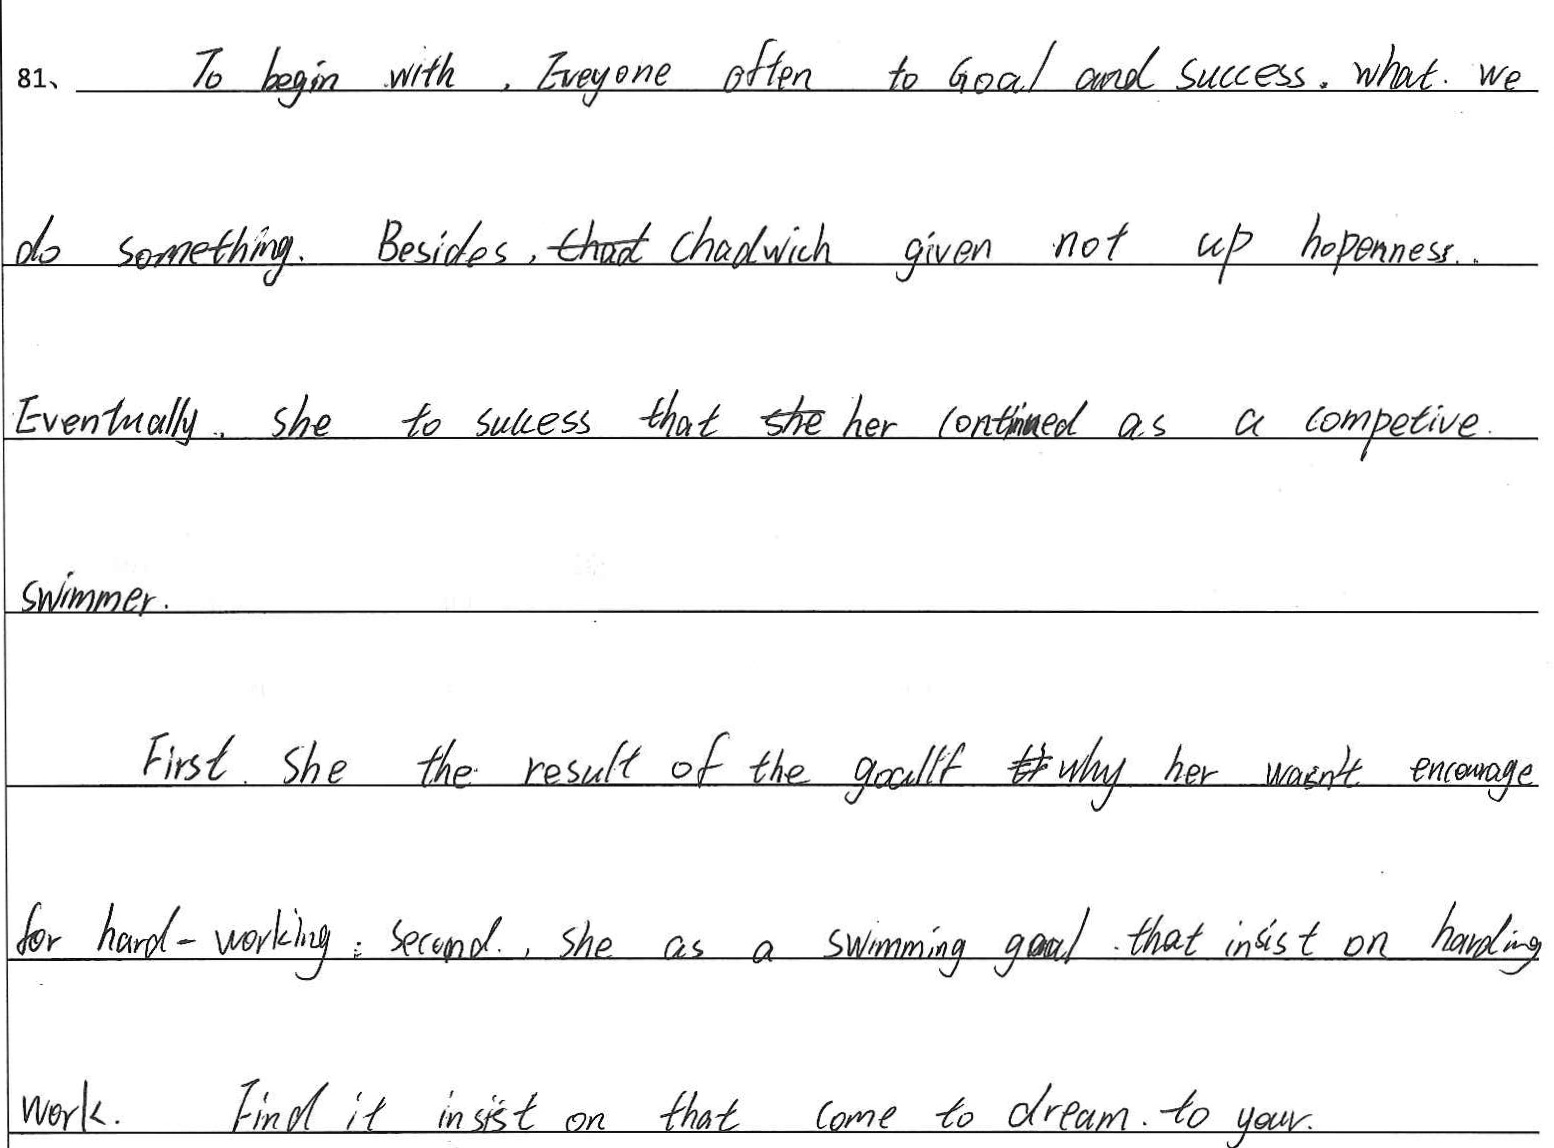 81、 To begin with , Eveyone often to Goal and success. what. we
do something. Besides, that Chadwich given not up hopenness..
Eventually, she to sukess that she her continued as a competive.
swimmer.
First. She the result of the why her wasn't encourage
for hard-working; second., she as a swimming goal that insist on harding
work. Find it insist on that come to dream. to your.